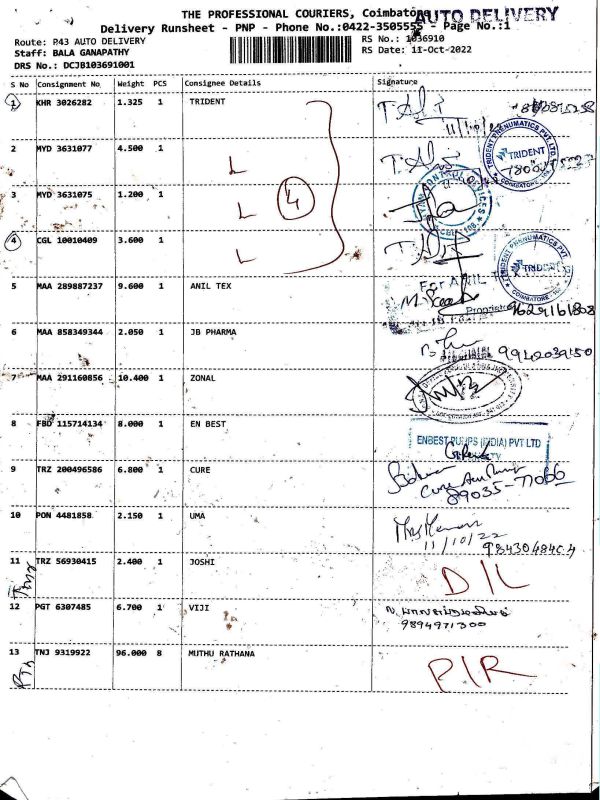 THE PROFESSIONAL COURIERS, Coimbatore
AUTO DELIVERY
Delivery Runsheet - PNP - Phone No.:0422-3505555 - Page No.:1
Route: P43 AUTO DELIVERY
RS No.: 1036910
Staff: BALA GANAPATHY
RS Date: 11-Oct-2022
DRS No.: DCJB103691001
S No Consignment No Weight PCS Consignee Details Signature
1 KHR 3026282 1.325 1 TRIDENT
11/10/22
2 MYD 3631077 4.500 1
TRIDENT PNEUMATICS PVT LTD
TRIDENT
COIMBATORE
3 MYD 3631075 1.200 1
4
4 CGL 10010409 3.600 1
TRIDENT PNEUMATICS PVT
TRIDENT
COIMBATORE
5 MAA 289887237 9.600 1 ANIL TEX
For ANIL T
Proprietor
9629161808
6 MAA 858349344 2.050 1 JB PHARMA
9942039150
7 MAA 291160856 10.400 1 ZONAL
8 FBD 115714134 8.000 1 EN BEST
ENBEST PUMPS (INDIA) PVT LTD
9 TRZ 200496586 6.800 1 CURE
89035-77066
10 PON 4481858 2.150 1 UMA
11/10/22
11 TRZ 56930415 2.400 1 JOSHI
D/L
12 PGT 6307485 6.700 1 VIJI
9894971300
13 TNJ 9319922 96.000 8 MUTHU RATHANA
P/R